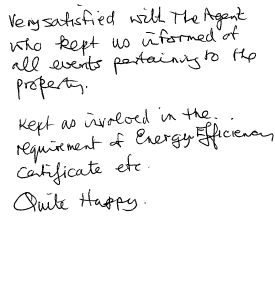 Very satisfied with The Agent
who kept us informed of
all events pertaining to the
property.
Kept as involved in the
requirement of Energy Efficiency
Certificate etc.
Quite Happy.